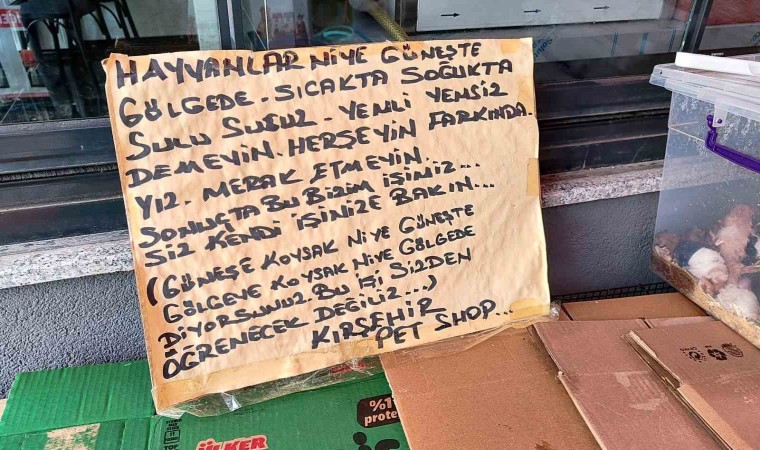 HAYVANLAR NİYE GÜNEŞTE
GÖLGEDE - SICAKTA SOĞUKTA
SULU SUSUZ - YEMLİ YEMSİZ
DEMEYİN. HERŞEYİN FARKINDA.
YIZ. MERAK ETMEYİN
SONUÇTA BU BİZİM İŞİMİZ...
SİZ KENDİ İŞİNİZE BAKIN...
(GÜNEŞE KOYSAK NİYE GÜNEŞTE
GÖLGEYE KOYSAK NİYE GÖLGEDE
DİYORSUNUZ. BU İŞİ SİZDEN
ÖĞRENECEK DEĞİLİZ...)
KIRŞEHİR
PET SHOP...
ÜLKER